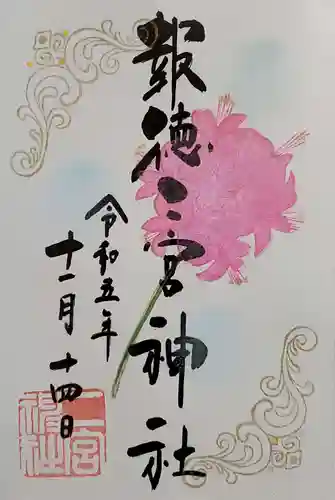 報徳二宮神社
令和五年
十一月十四日
二宮神社